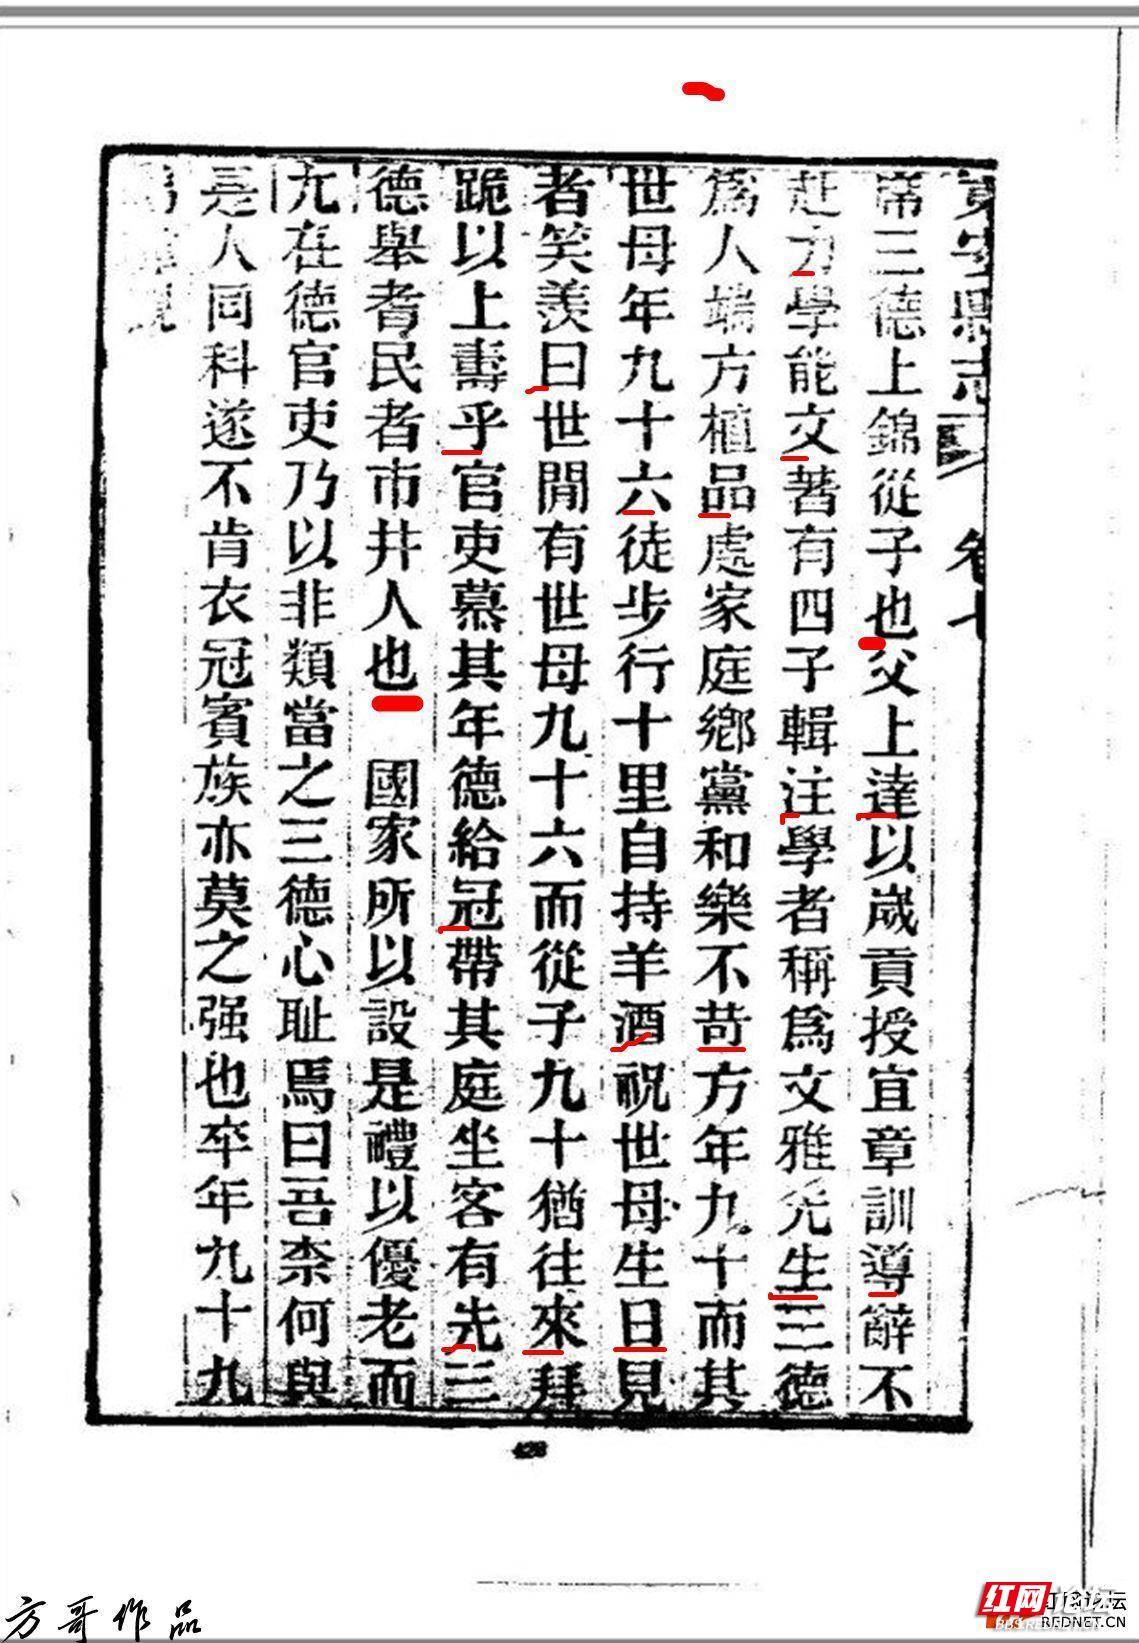 縣志 卷七
席三德上錦從子也父上達以歲貢授宜章訓導辭不
赴力學能文著有四子輯注學者稱爲文雅先生三德
爲人端方植品處家庭鄉黨和樂不苛方年九十而其
世母年九十六徒步行十里自持羊酒祝世母生日見
者笑羨曰世閒有世母九十六而從子九十猶往來拜
跪以上壽乎官吏慕其年德給冠帶其庭坐客有先三
德舉者民者市井人也 國家所以設是禮以優老而
尢在德官吏乃以非類當之三德心耻焉曰吾柰何與
是人同科遂不肯衣冠賓族亦莫之强也卒年九十九
428
方哥作品
红网论坛
REDNET.CN